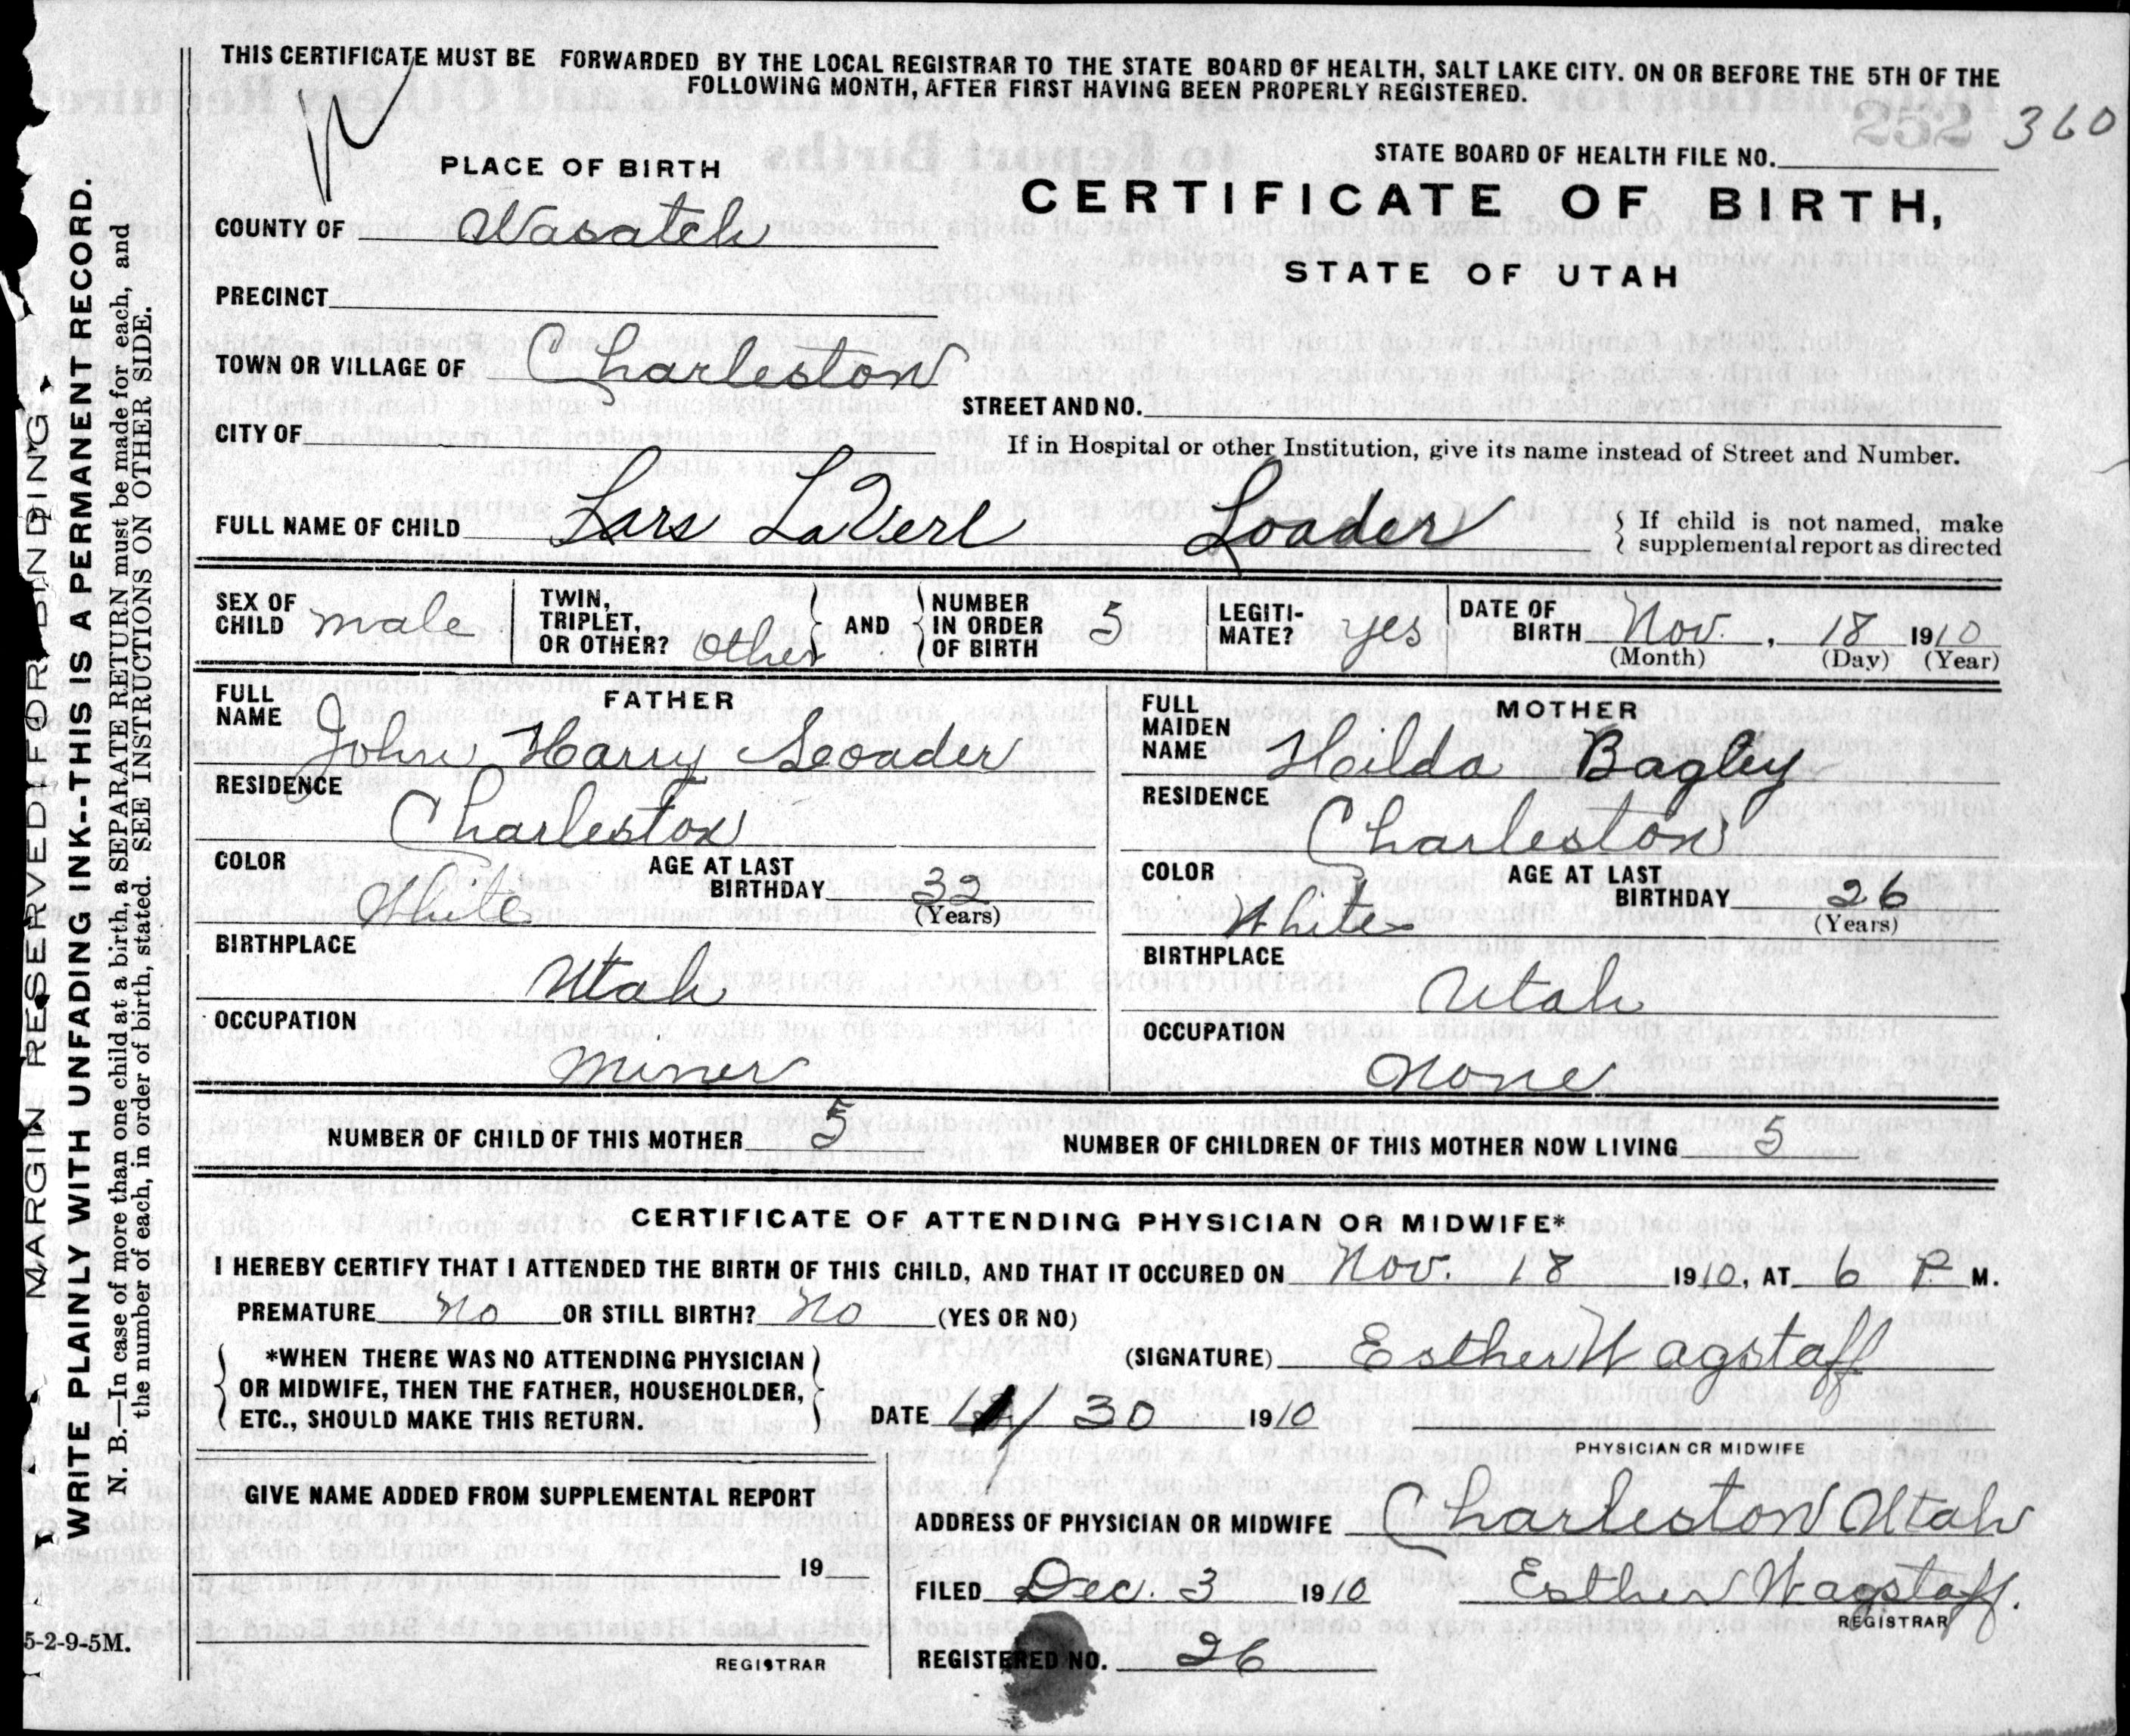 THIS CERTIFICATE MUST BE FORWARDED BY THE LOCAL REGISTRAR TO THE STATE BOARD OF HEALTH, SALT LAKE CITY. ON OR BEFORE THE 5TH OF THE
FOLLOWING MONTH, AFTER FIRST HAVING BEEN PROPERLY REGISTERED.
252 360
STATE BOARD OF HEALTH FILE NO.
PLACE OF BIRTH
CERTIFICATE OF BIRTH,
STATE OF UTAH
COUNTY OF Wasatch
PRECINCT
TOWN OR VILLAGE OF Charleston
STREET AND NO.
CITY OF
If in Hospital or other Institution, give its name instead of Street and Number.
FULL NAME OF CHILD Lars LaVerl Loader
If child is not named, make
supplemental report as directed
SEX OF CHILD male
TWIN, TRIPLET, OR OTHER? other
AND
NUMBER IN ORDER OF BIRTH 5
LEGITI-MATE? yes
DATE OF BIRTH Nov. , 18 1910
(Month) (Day) (Year)
FATHER
FULL NAME John Harry Leoader
RESIDENCE
Charleston
COLOR White
AGE AT LAST BIRTHDAY 32
(Years)
BIRTHPLACE
Utah
OCCUPATION
Miner
MOTHER
FULL MAIDEN NAME Hilda Bagley
RESIDENCE
Charleston
COLOR White
AGE AT LAST BIRTHDAY 26
(Years)
BIRTHPLACE
Utah
OCCUPATION
None
NUMBER OF CHILD OF THIS MOTHER 5 NUMBER OF CHILDREN OF THIS MOTHER NOW LIVING 5
CERTIFICATE OF ATTENDING PHYSICIAN OR MIDWIFE*
I HEREBY CERTIFY THAT I ATTENDED THE BIRTH OF THIS CHILD, AND THAT IT OCCURED ON Nov. 18 1910, AT 6 P M.
PREMATURE no OR STILL BIRTH? no (YES OR NO)
*WHEN THERE WAS NO ATTENDING PHYSICIAN
OR MIDWIFE, THEN THE FATHER, HOUSEHOLDER,
ETC., SHOULD MAKE THIS RETURN.
(SIGNATURE) Esther Wagstaff
DATE 11/30 1910
PHYSICIAN OR MIDWIFE
GIVE NAME ADDED FROM SUPPLEMENTAL REPORT
19
REGISTRAR
ADDRESS OF PHYSICIAN OR MIDWIFE Charleston Utah
FILED Dec. 3 1910 Esther Wagstaff.
REGISTRAR
REGISTERED NO. 26
MARGIN RESERVED FOR BINDING
WRITE PLAINLY WITH UNFADING INK--THIS IS A PERMANENT RECORD.
N. B.—In case of more than one child at a birth, a SEPARATE RETURN must be made for each, and
the number of each, in order of birth, stated. SEE INSTRUCTIONS ON OTHER SIDE.
5-2-9-5M.